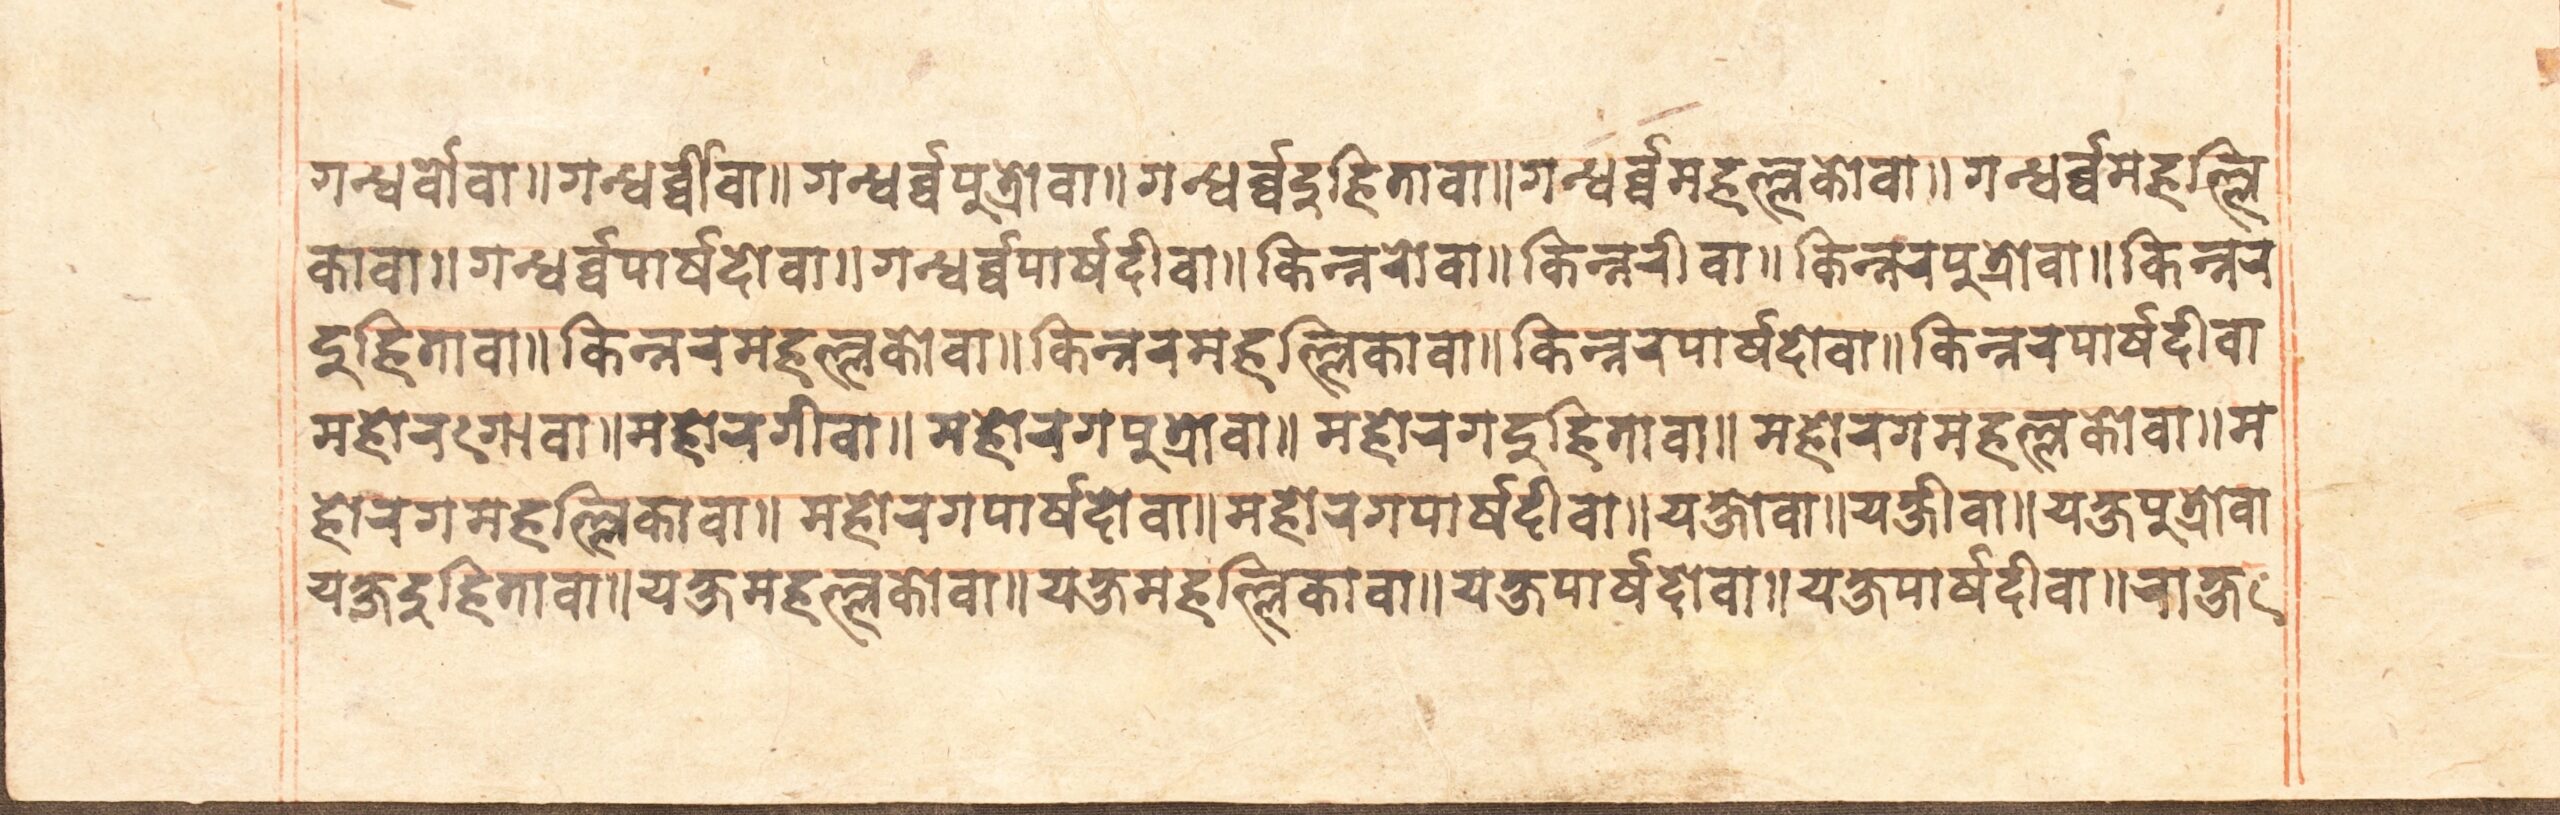 गन्धर्वोवा॥गन्धर्व्वीवा॥गन्धर्व्वपुत्रोवा॥गन्धर्व्वदुहितावा॥गन्धर्व्वमहल्लकोवा॥गन्धर्व्वमहल्लि
कावा॥गन्धर्व्वपार्षदोवा॥गन्धर्व्वपार्षदीवा॥किन्नरोवा॥किन्नरीवा॥किन्नरपुत्रोवा॥किन्नर
दुहितावा॥किन्नरमहल्लकोवा॥किन्नरमहल्लिकावा॥किन्नरपार्षदोवा॥किन्नरपार्षदीवा
महोरगोवा॥महोरगीवा॥महोरगपुत्रोवा॥महोरगदुहितावा॥महोरगमहल्लकोवा॥म
होरगमहल्लिकावा॥महोरगपार्षदोवा॥महोरगपार्षदीवा॥यक्षोवा॥यक्षीवा॥यक्षपुत्रोवा
यक्षदुहितावा॥यक्षमहल्लकोवा॥यक्षमहल्लिकावा॥यक्षपार्षदोवा॥यक्षपार्षदीवा॥राक्ष